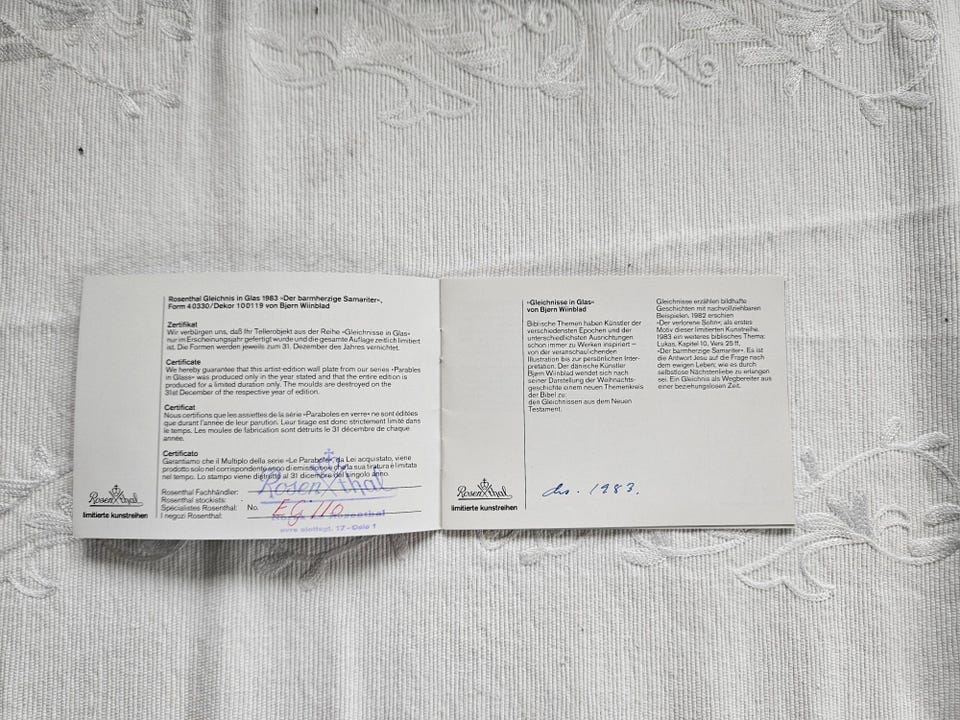 Rosenthal Gleichnis in Glas 1983 »Der barmherzige Samariter«,
Form 40330/Dekor 100119 von Bjørn Wiinblad
Zertifikat
Wir verbürgen uns, daß Ihr Tellerobjekt aus der Reihe »Gleichnisse in Glas«
nur im Erscheinungsjahr gefertigt wurde und die gesamte Auflage zeitlich limitiert
ist. Die Formen werden jeweils zum 31. Dezember des Jahres vernichtet.
Certificate
We hereby guarantee that this artist-edition wall plate from our series »Parables
in Glass« was produced only in the year stated and that the entire edition is
produced for a limited duration only. The moulds are destroyed on the
31st December of the respective year of edition.
Certificat
Nous certifions que les assiettes de la série »Paraboles en verre« ne sont éditées
que durant l'année de leur parution. Leur tirage est donc strictement limité dans
le temps. Les moules de fabrication sont détruits le 31 décembre de chaque
année.
Certificato
Garantiamo che il Multiplo della serie »Le Parabole« da Lei acquistato, viene
prodotto solo nel corrispondente anno di emissione che la sua tiratura è limitata
nel tempo. Lo stampo viene distrutto al 31 dicembre del singolo anno.
Rosenthal Fachhändler:
Rosenthal stockists:
Spécialistes Rosenthal:
I negozi Rosenthal:
No. EG 110
Rosenthal
Rosenthal
17 - Oslo 1
Rosenthal
limitierte kunstreihen
»Gleichnisse in Glas«
von Bjørn Wiinblad
Biblische Themen haben Künstler der
verschiedensten Epochen und der
unterschiedlichsten Ausrichtungen
schon immer zu Werken inspiriert –
von der veranschaulichenden
Illustration bis zur persönlichen Inter-
pretation. Der dänische Künstler
Bjørn Wiinblad wendet sich nach
seiner Darstellung der Weihnachts-
geschichte einem neuen Themenkreis
der Bibel zu:
den Gleichnissen aus dem Neuen
Testament.
Gleichnisse erzählen bildhafte
Geschichten mit nachvollziehbaren
Beispielen. 1982 erschien
»Der verlorene Sohn« als erstes
Motiv dieser limitierten Kunstreihe.
1983 ein weiteres biblisches Thema:
Lukas, Kapitel 10, Vers 25 ff,
»Der barmherzige Samariter«. Es ist
die Antwort Jesu auf die Frage nach
dem ewigen Leben; wie es durch
selbstlose Nächstenliebe zu erlangen
sei. Ein Gleichnis als Wegbereiter aus
einer beziehungslosen Zeit.
Rosenthal
limitierte kunstreihen
1983.